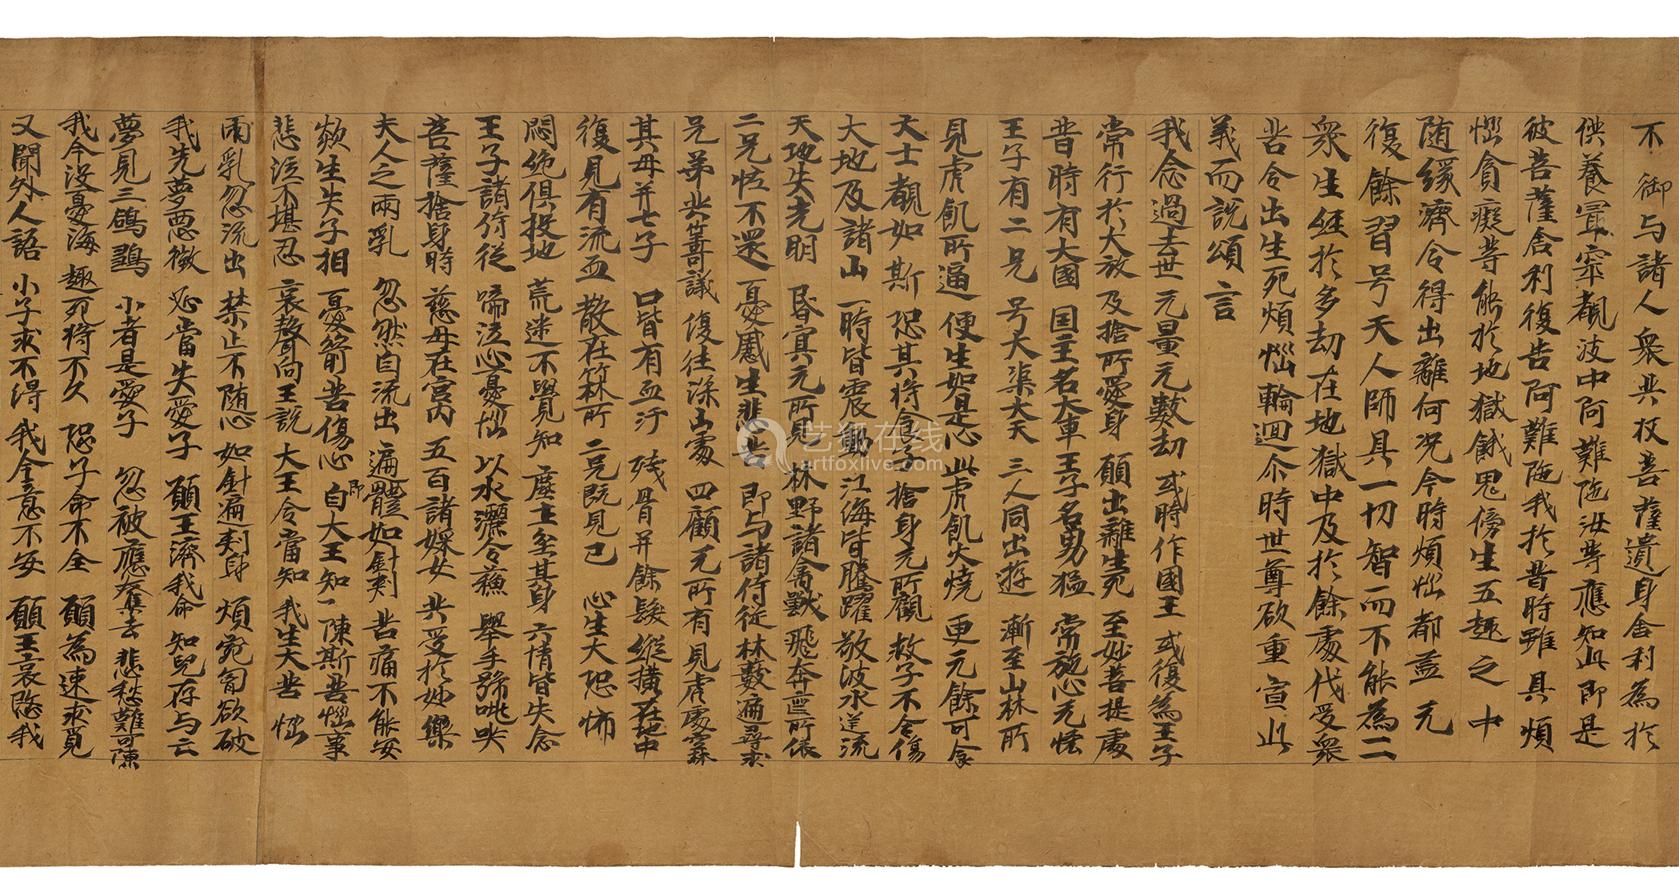 不御与諸人衆共收菩薩遺身舍利為於
供養置窣覩波中阿難陁汝等應知此即是
彼菩薩舍利復告阿難陁我於昔時雖具煩
惱貪癡等能於地獄餓鬼傍生五趣之中
随緣濟令得出離何况今時煩惱都盡无
復餘習号天人師具一切智而不能為一一
衆生經於多劫在地獄中及於餘處代受衆
苦令出生死煩惱輪迴尒時世尊欲重宣此
義而說頌言
我念過去世 无量无數劫 或時作國王 或復為王子
常行於大施 及捨所愛身 願出離生死 至妙菩提處
昔時有大國 国主名大車 王子名勇猛 常施心无悋
王子有二兄 号大渠大天 三人同出遊 漸至山林所
見虎飢所逼 便生如是心 此虎飢火燒 更无餘可食
大士覩如斯 恐其将食子 捨身无所顧 救子不令傷
大地及諸山 一時皆震動 江海皆騰躍 驚波水逆流
天地失光明 昏冥无所見 林野諸禽獸 飛奔喪所依
二兄恠不還 憂慼生悲苦 即与諸侍從 林藪遍尋求
兄弟共籌議 復往深山處 四顧无所有 見虎處空林
其母并七子 口皆有血汙 残骨并餘髮 縱橫在地中
復見有流血 散在竹林所 二兄既見已 心生大恐怖
悶絶俱投地 荒迷不覺知 塵土坌其身 六情皆失念
王子諸侍從 啼泣心憂惱 以水灑令蘓 舉手號咷哭
菩薩捨身時 慈母在宫内 五百諸婇女 共受於妙樂
夫人之兩乳 忽然自流出 遍體如針刺 苦痛不能安
欻生失子相 憂箭苦傷心 即白大王知 陳斯苦惱事
悲泣不堪忍 哀聲向王說 大王今當知 我生大苦惱
兩乳忽流出 禁止不随心 如針遍刺身 煩寃胷欲破
我先夢惡徵 必當失愛子 願王濟我命 知兒存与亡
夢見三鴿鶵 小者是愛子 忽被鷹奪去 悲愁難可陳
我今没憂海 趣死将不久 恐子命不全 願為速求覓
又聞外人語 小子求不得 我今意不安 願王哀愍我
艺狐在线
artfoxlive.com